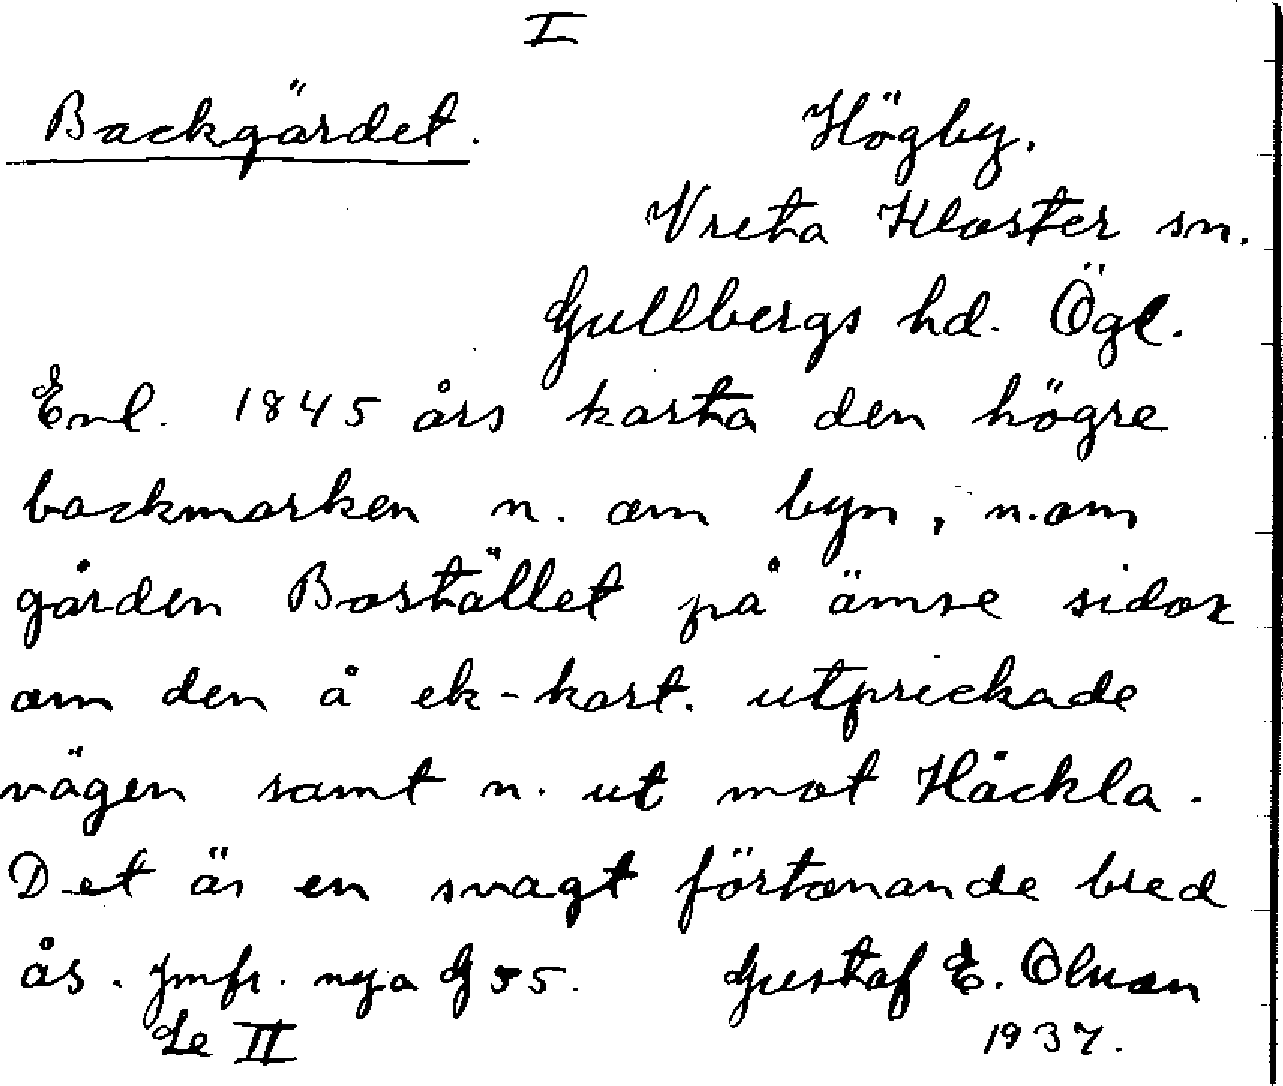 I
Backgärdet. Högby,
Vreta Kloster sn.
Gullbergs hd. Ögl.
Enl. 1845 års karta den högre
backmarken n. om byn, n.om
gården Bostället på ömse sidor
om den å ek-kart. utprickade
vägen samt n. ut mot Häckla.
Det är en svagt förtonande bred
ås. Jmfr. nya G 55. Gustaf E. Olsson
Se II 1937.